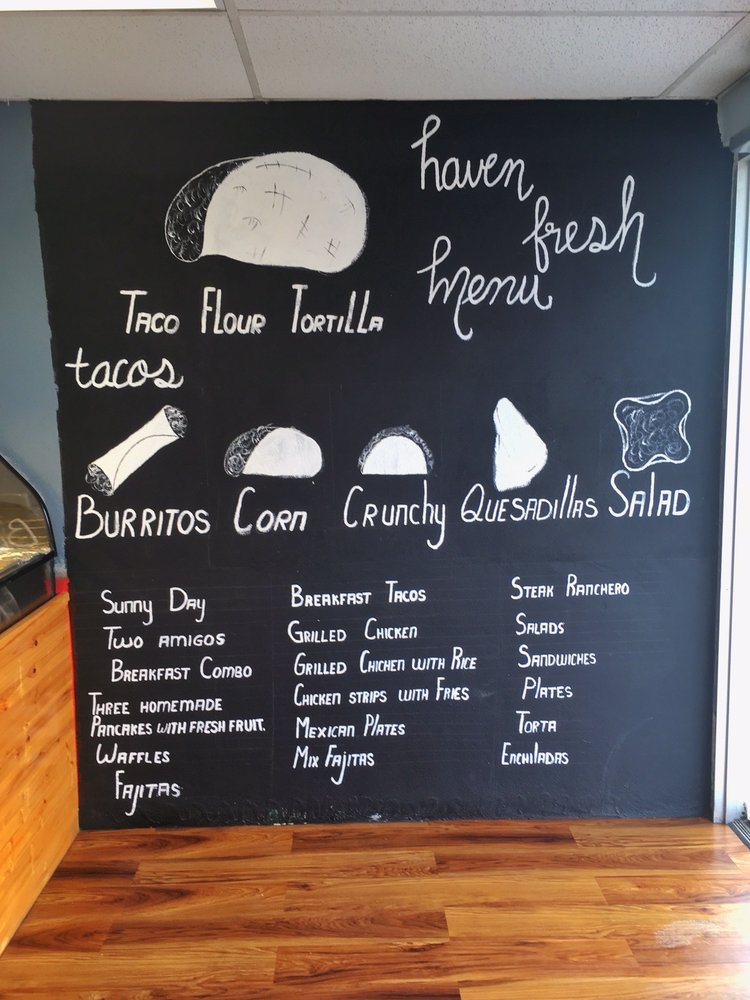 haven
fresh
menu
Taco Flour Tortilla
tacos
Burritos Corn Crunchy Quesadillas Salad
Sunny Day
Two amigos
Breakfast Combo
Three homemade
Pancakes with fresh fruit.
Waffles
Fajitas
Breakfast Tacos
Grilled Chicken
Grilled Chichen with Rice
Chicken strips with Fries
Mexican Plates
Mix Fajitas
Steak Ranchero
Salads
Sandwiches
Plates
Torta
Enchiladas